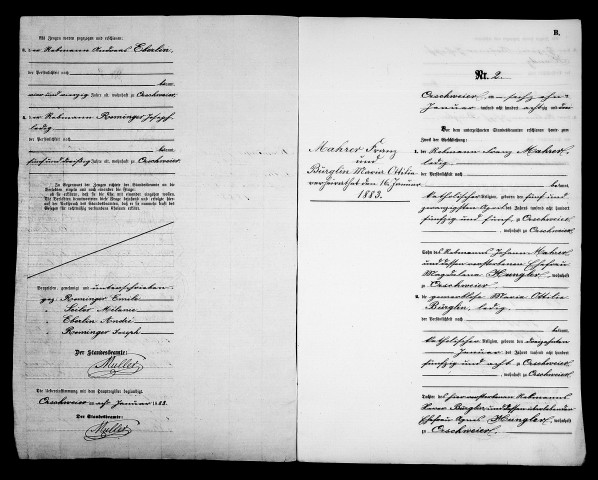 Als Zeugen waren zugezogen und erschienen:
1. der Rebmann Andreas Eberlin,
der Persönlichkeit nach
kannt,
vier und vierzig Jahre alt, wohnhaft zu Orschweier
2. der Rebmann Rominger Joseph,
ledig,
der Persönlichkeit nach
kannt,
fünf und dreißig Jahre alt, wohnhaft zu Orschweier
In Gegenwart der Zeugen richtete der Standesbeamte an die
Verlobten einzeln und nach einander die Frage:
ob sie erklären, daß sie die Ehe mit einander eingehen wollen.
Die Verlobten beantworteten diese Frage bejahend und erfolgte hier-
auf der Ausspruch des Standesbeamten, daß er sie nunmehr kraft des
Gesetzes für rechtmäßig verbundene Eheleute erkläre.
Vorgelesen, genehmigt und unterschrieben
gez. Rominger Emile
" Seiler Mélanie
" Eberlin André
" Rominger Joseph
Der Standesbeamte:
Muller
Die Uebereinstimmung mit dem Hauptregister beglaubigt.
Orschweier, am Januar 1883.
Der Standesbeamte:
Muller
B.
Nr. 2.
Orschweier, am sechzehn
Januar tausend acht hundert achtzig und drei
Vor dem unterzeichneten Standesbeamten erschienen heute zum
Zweck der Eheschließung:
1. der Rebmann Franz Mahrer,
ledig,
der Persönlichkeit nach
kannt,
katholischer Religion, geboren den fünf und
zwanzigsten April des Jahres tausend acht hundert
fünfzig und fünf zu Orschweier
, wohnhaft zu Orschweier
Sohn des Rebmanns Johann Mahrer
und dessen verstorbenen Ehefrau
Magdalena Hungler, wohnhaft
zu Orschweier.
2. die gewerblose Maria Ottilia
Bürglin, ledig,
der Persönlichkeit nach
kannt,
katholischer Religion, geboren den dreizehnten
Januar des Jahres tausend acht hundert
fünfzig und acht zu Orschweier
, wohnhaft zu Orschweier
Tochter des hier verstorbenen Rebmanns
Xaver Bürglin und dessen überlebenden
Ehefrau Agnes Hungler, wohnhaft
zu Orschweier.
Mahrer Franz
und
Bürglin Maria Ottilia
verheirathet den 16. Januar
1883.